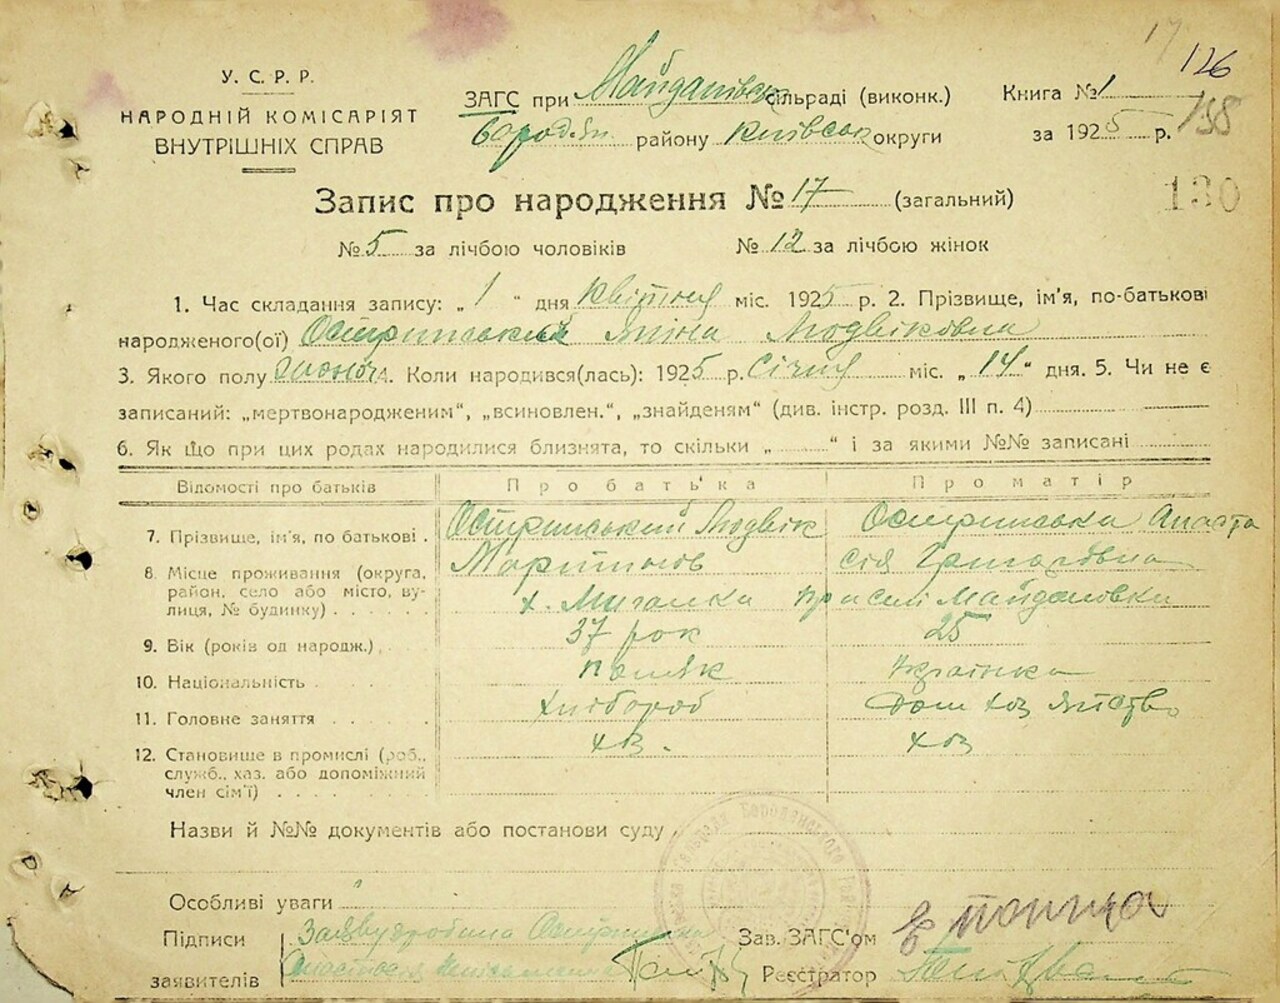 17
126
138
130
У. С. Р. Р.
НАРОДНІЙ КОМІСАРІЯТ
ВНУТРІШНІХ СПРАВ
ЗАГС при Майданівськ сільраді (виконк.)
Бород.ян. району Київськ округи
Книга № 1
за 1925 р.
Запис про народження № 17 (загальний)
№ 5 за лічбою чоловіків № 12 за лічбою жінок
1. Час складання запису: „ 1 “ дня Квітня міс. 1925 р. 2. Прізвище, ім'я, по-батькові
народженого(ої) Яніна Людвіковна
3. Якого полу жіноч 4. Коли народився(лась): 1925 р. Січня міс. „ 14 “ дня. 5. Чи не є
записаний: „мертвонародженим“, „всиновлен.“, „знайденям“ (див. інстр. розд. III п. 4)
6. Як що при цих родах народилися близнята, то скільки „ “ і за якими №№ записані
Відомості про батьків Про батька Про матір
7. Прізвище, ім'я, по батькові . Остринський Людвік Остринська Анаста
Мартинов сія Григорівна
8. Місце проживання (округа,
район, село або місто, ву-
лиця, № будинку) . . . . . . х. Мигалки при селі Майдановки
9. Вік (років од народж.) 37 рок 25
10. Національність . . . . поляк Українка
11. Головне заняття . . . . . Хлібороб Дом хоз яйство
12. Становище в промислі (роб., хоз. хоз
служб., хаз. або допоміжний
член сім'ї) . . . . . . . .
Назви й №№ документів або постанови суду
Особливі уваги
Підписи
заявителів
Зав. ЗАГС'ом
Реєстратор